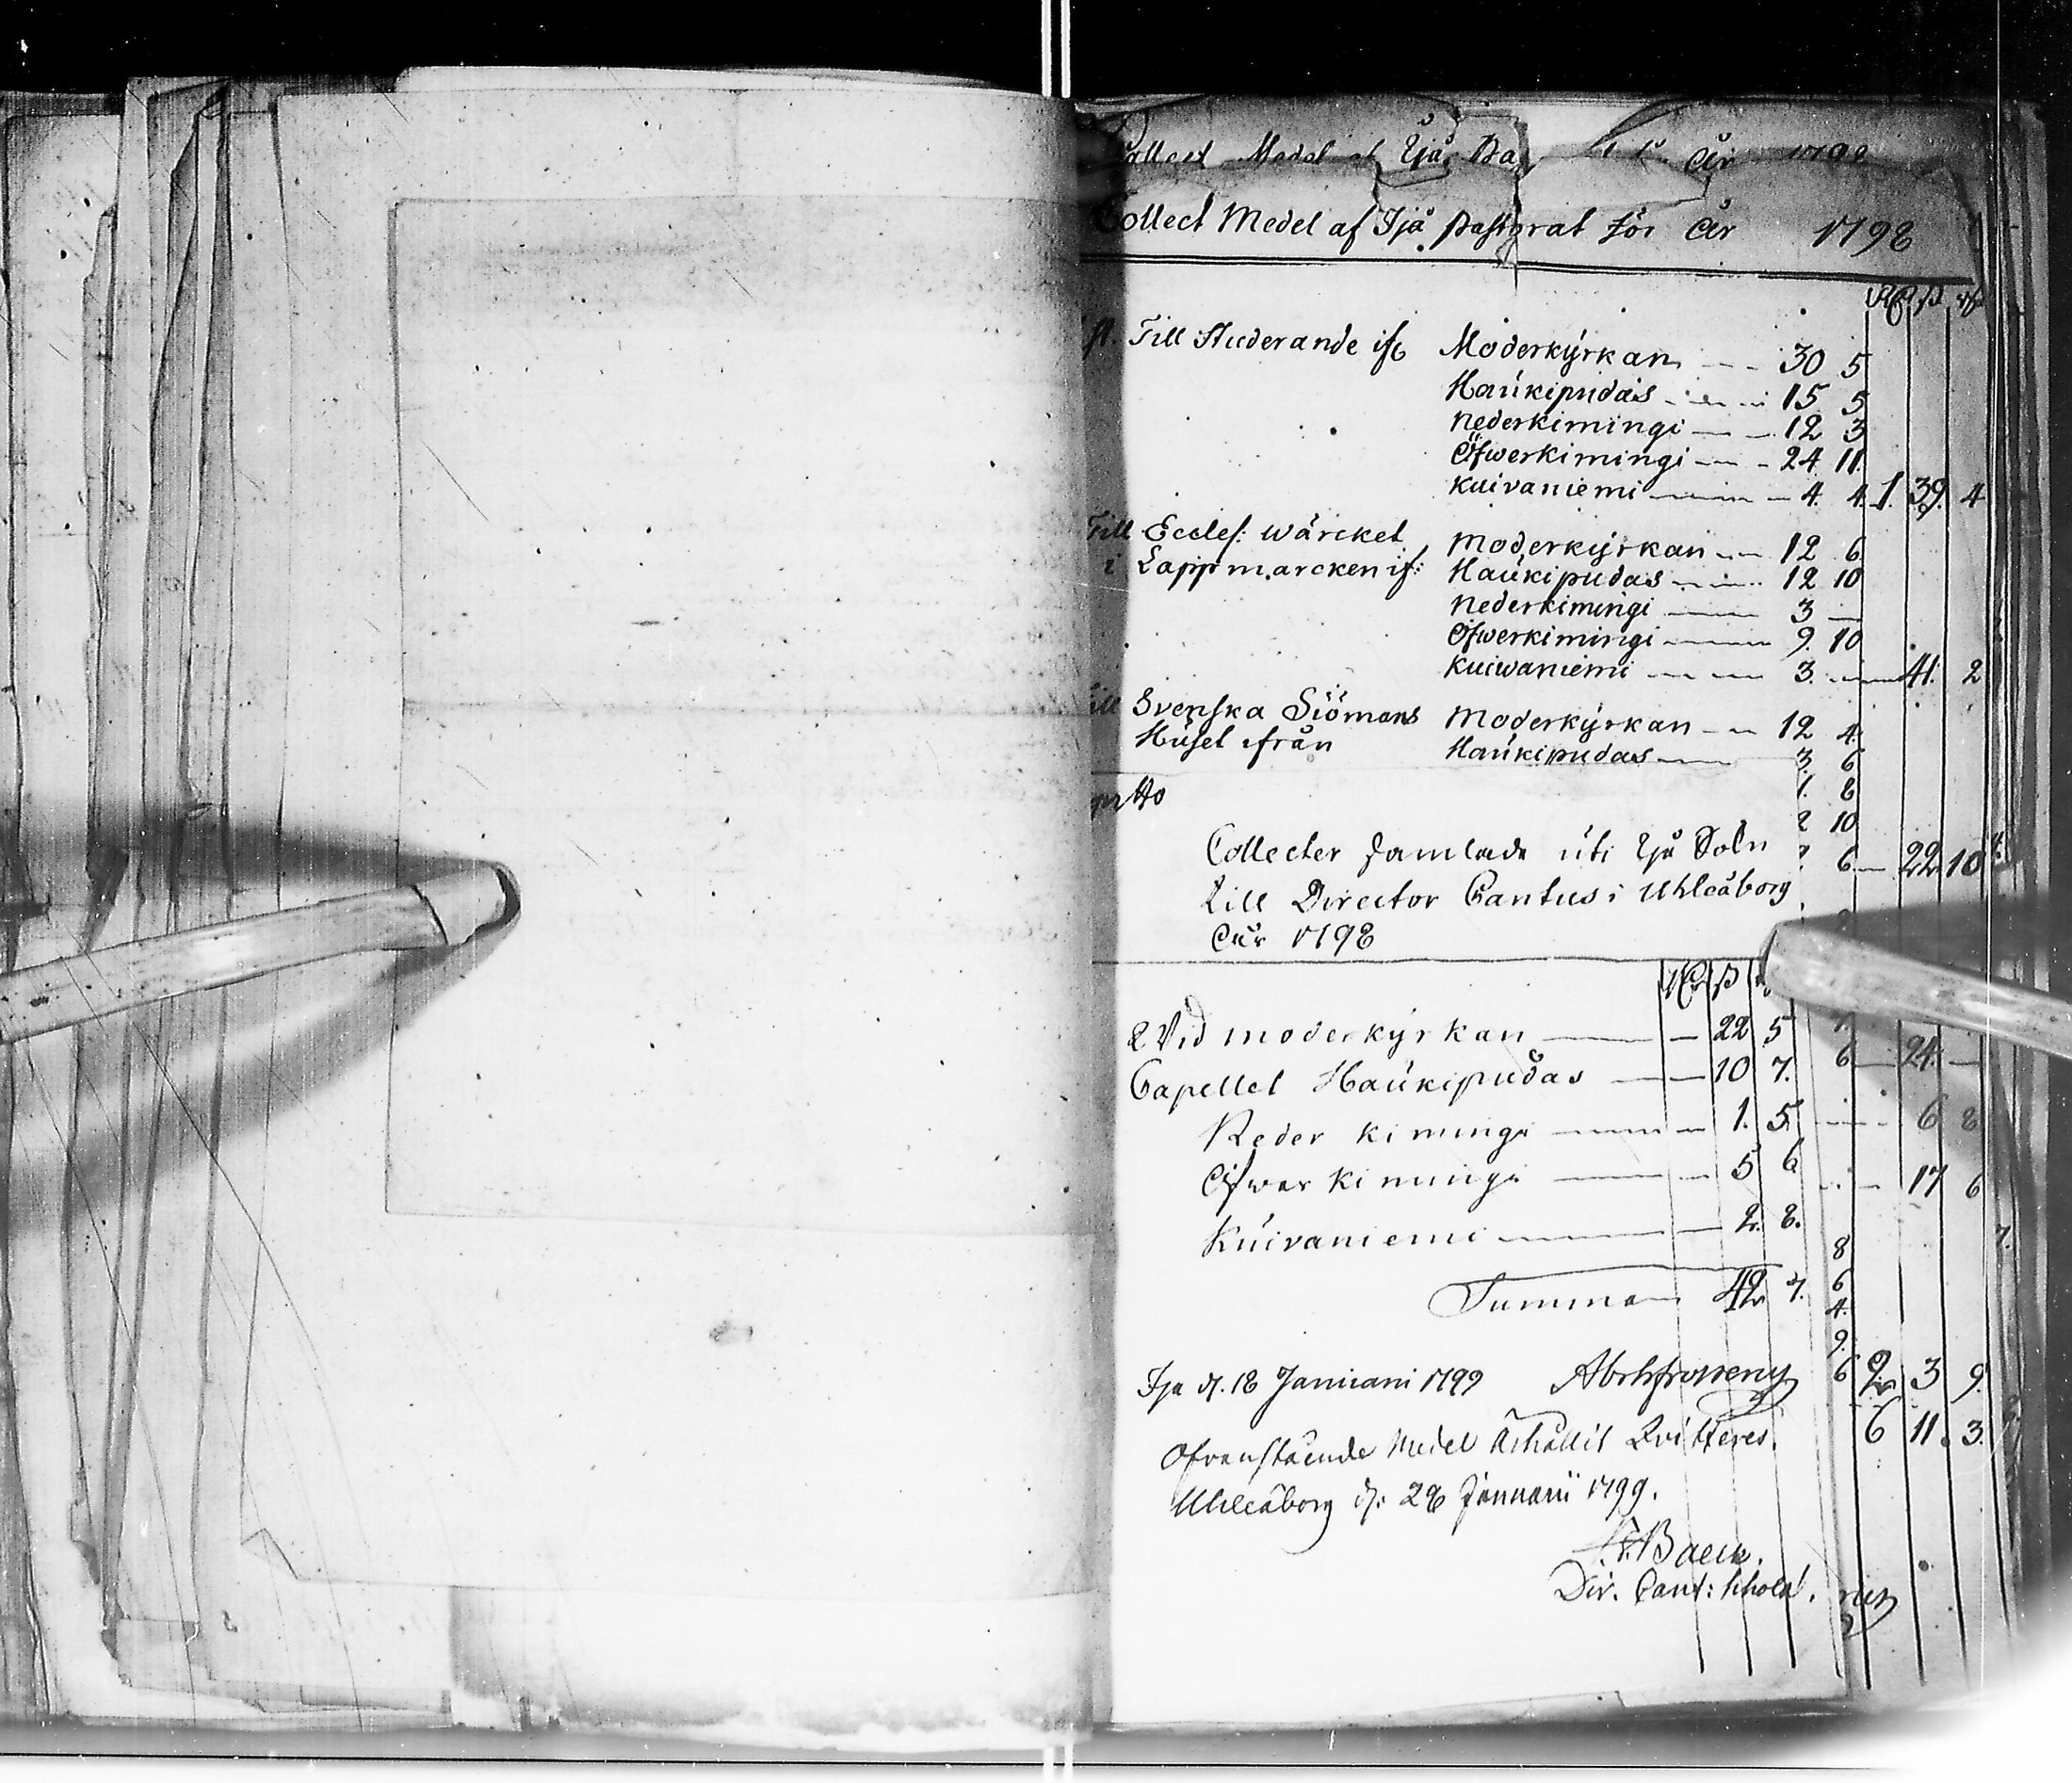 Collect Medel af Ijå År 1798
Collect Medel af Ijå Pastorat för År 1798
Rd ß rs
Till Studerande ifr Moderkÿrkan 30 5
Haukipudas 15 5
Nederkimingi 12 3
Öfwerkimingi 24 11
Kuivaniemi 4 4 1 39 4
Till Eccles: wärcket Moderkÿrkan 12 6
i Lappmarcken if: Haukipudas 12 10
Nederkimingi 3 —
Öfwerkimingi 9 10
Kuiwaniemi 3 — 41 2
Till Svenska Siömans Moderkÿrkan 12 4
Huset ifrån Haukipudas 3 6
1 8
2 10
Collecter samlade uti Ijå Sokn 6 — 22 10
till Director Cantus i Uhleåborg
År 1798
Rd ß
Vid moderkÿrkan — 22 5
6 — 24 —
Capellet Haukipudas — 10 7.
Neder kimingi — 1. 5. 6 8
Öfwer kimingi — 5 6 17 6
Kuivaniemi — 2. 8.
8
Summa 42 7. 6
4.
9.
Ijå d. 18 Januarii 1799 6 2 3 9.
6 11. 3.
Ofvanstående Medel Erhållit Qvitteres.
Uhleåborg d: 28 Januarii 1799.
Baeck.
Dir. Cant: Schol.